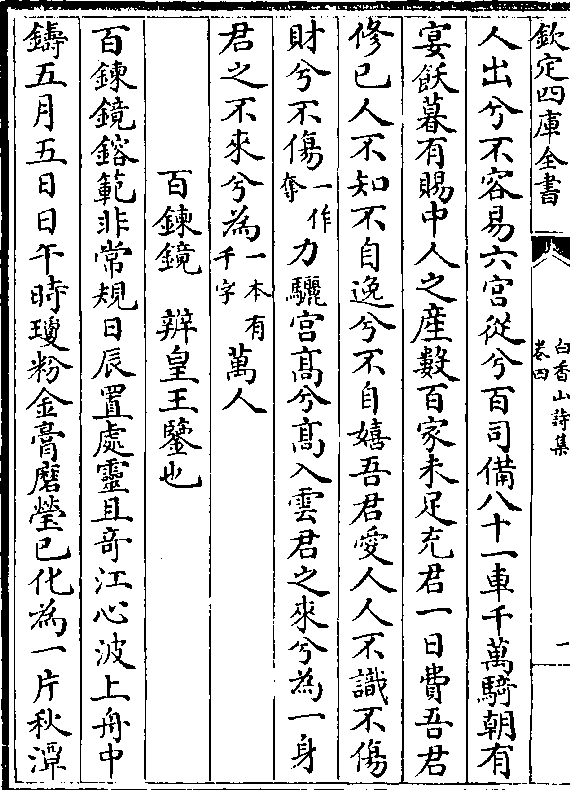 欽定四庫全書
白香山詩集
卷四
一
人出兮不容易六宮從兮百司備八十一車千萬騎朝有
宴飫暮有賜中人之産數百家未足充君一日費吾君
修己人不知不自逸兮不自嬉吾君愛人人不識不傷
財兮不傷一作奪力驪宮髙兮髙入雲君之來兮為一身
君之不來兮為一本有千字萬人
百鍊鏡 辨皇王鑒也
百鍊鏡鎔範非常規日辰置處靈且竒江心波上舟中
鑄五月五日日午時瓊粉金膏磨瑩已化為一片秋潭